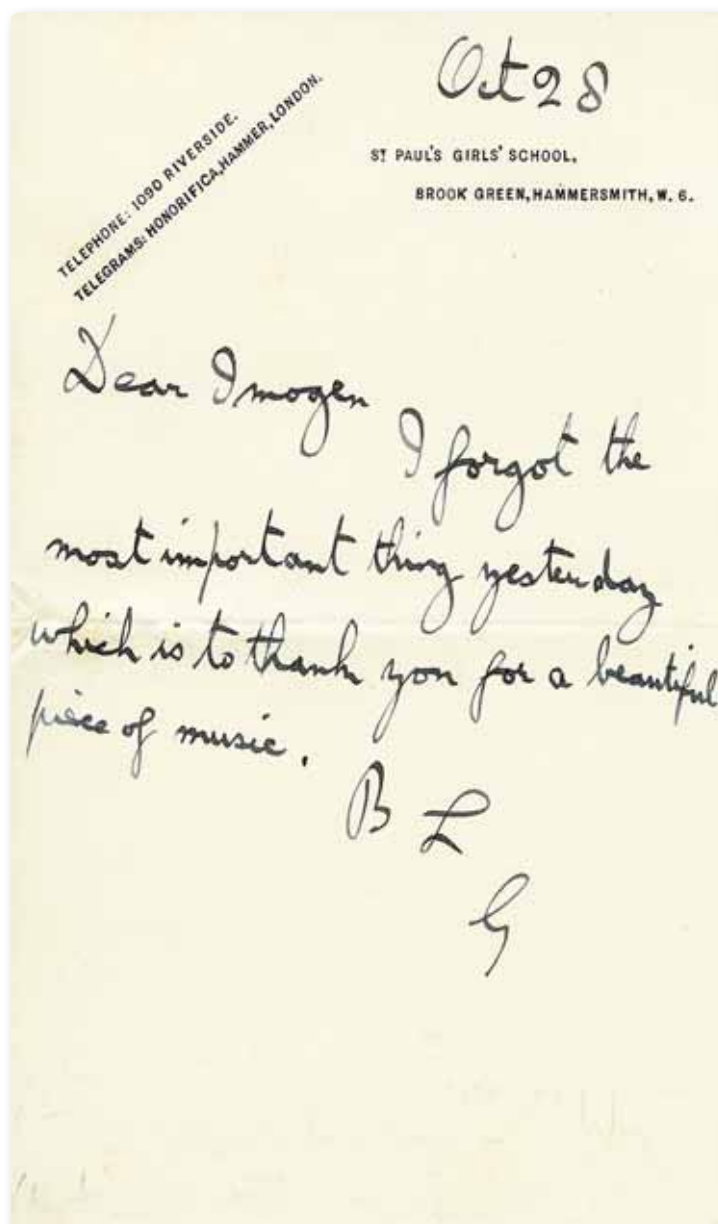 Oct 28
TELEPHONE: 1090 RIVERSIDE.
TELEGRAMS: HONORIFICA, HAMMER, LONDON.
ST PAUL'S GIRLS' SCHOOL,
BROOK GREEN, HAMMERSMITH, W. 6.
Dear Imogen
I forgot the
most important thing yesterday
which is to thank you for a beautiful
piece of music.
B L
G